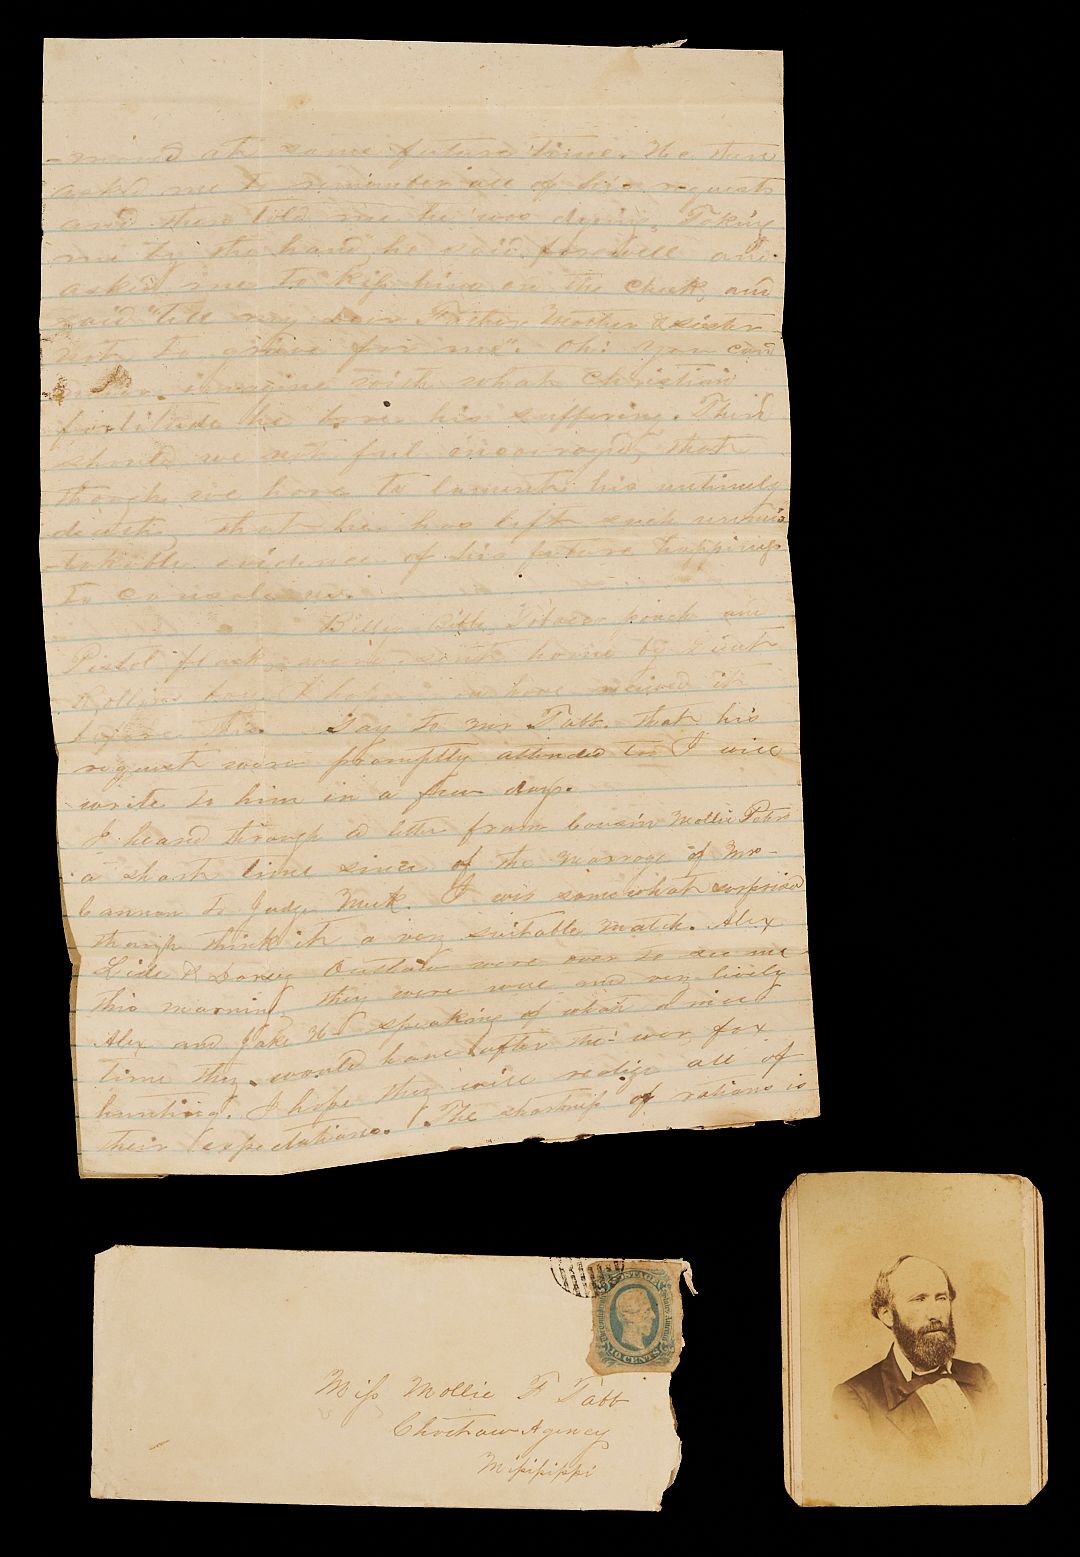 -mond at some future time. He then
asked me to remember all of his requests
and then told me he was dying, Taking
me by the hand he said farewell and
asked me to kiss him on the cheek, and
said "tell my dear Father, Mother & sister
not to grieve for me". Oh! you can
never imagine with what Christian
fortitude he bore his suffering. Then
should we not feel encouraged, that
though we have to lament his untimely
death, that he has left such unmis
-takable evidence of his future happiness
to console us.
Bible, Tobacco pouch and
Pistol flask were sent home by Lieut
boy I hope you have received it
before this. Say to Mr Tabb that his
request were promptly attended to I will
write to him in a few days.
I heard through a letter from Cousin Mollie Peters
a short time since of the marrage of Mrs-
Cannon to Judge Meek. I was somewhat surprised
though think it a very suitable match. Alex
Lide & Dorsey Outlaw were over to see me
this morning they were well and very lively
Alex and Jake H speaking of what a nice
time they would have after the war, fox
hunting. I hope they will realize all of
their expectations. The shortness of rations is
10 CENTS
Miss Mollie F Tabb
Choctaw Agency
Mississippi